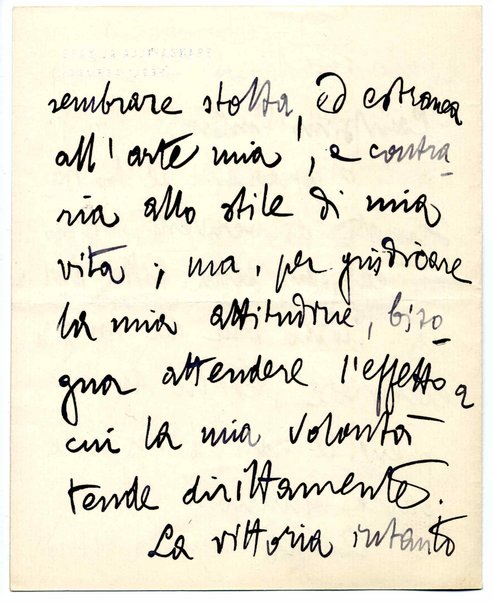 sembrare stolta, ed estranea
all'arte mia, e contra-
ria allo stile di mia
vita; ma, per giudicare
la mia attitudine, biso-
gna attendere l'effetto a
cui la mia volontà
tende dirittamente.
La vittoria intanto